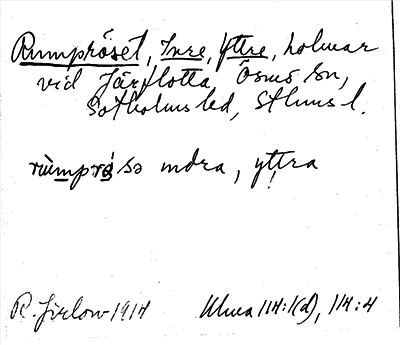 Rumpröset, Inre, Yttre, holmar
vid Järflotta, Ösmo sn,
Sotholms hd, Sthms l.
rùmprǿsə indra, yttra
R. Jirlow 1914 Ulma 114:1(d), 114:4